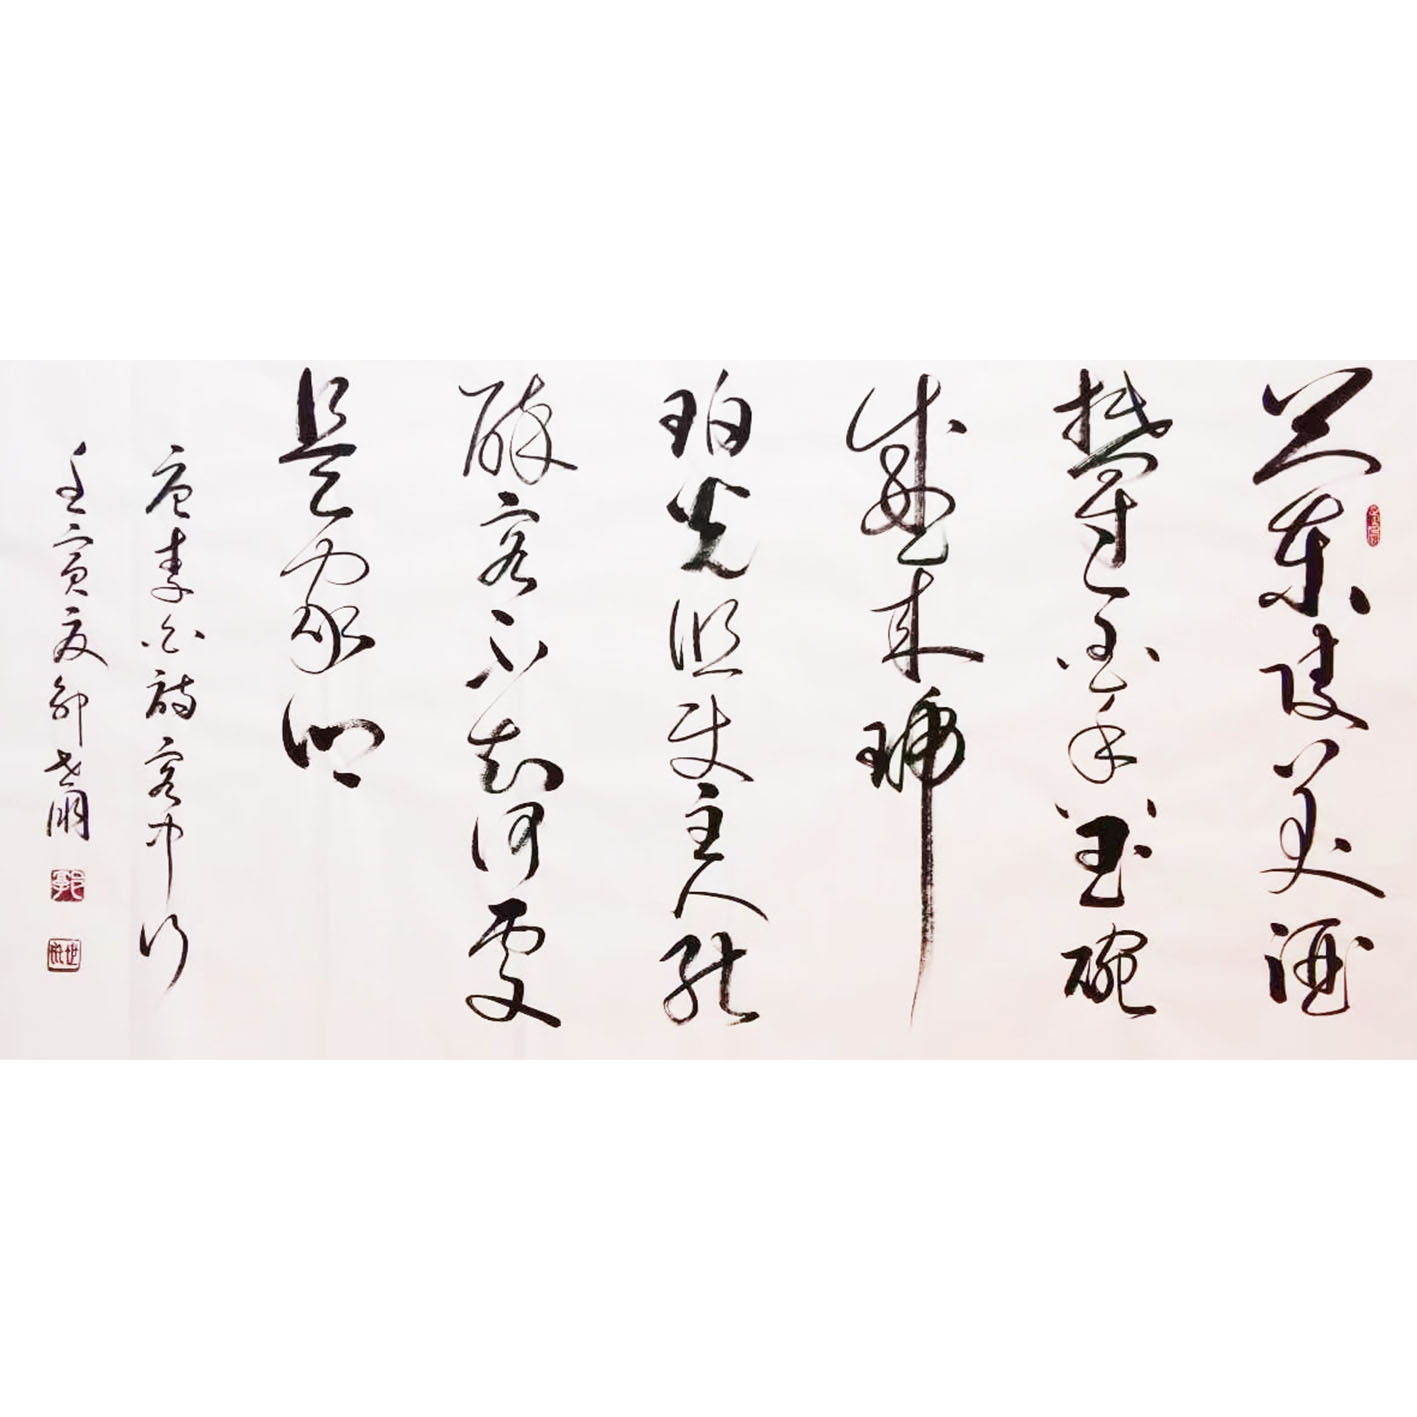 蘭陵美酒
鬱金香玉碗
盛来琥
珀光但使主人能
醉客不知何處
是家鄉
唐李白詩客中行
壬寅夏郭世